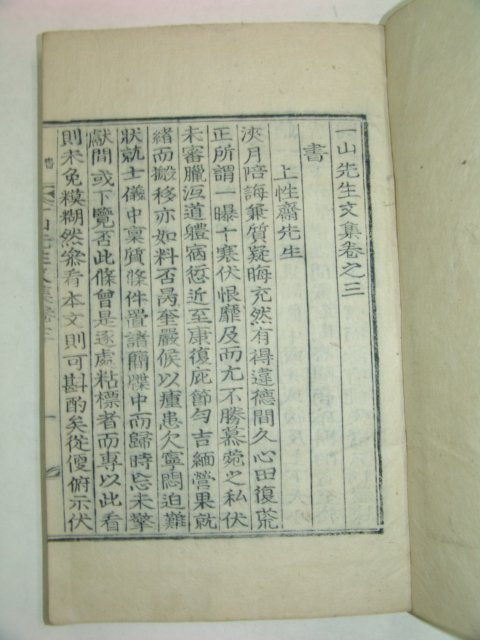 一山先生文集卷之三
書
上性齋先生
浹月陪誨兼質疑晦充然有得違德間久心田復荒
正所謂一曝十寒伏恨靡及而尤不勝慕菀之私伏
未審臘沍道體病愆近至康復庇節勻吉緬營果就
緖而搬移亦如料否禼奎嚴候以瘇患欠寧悶迫難
狀就士儀中稟質條件置諸簡牒中而歸時忘未擎
獻間或下覽否此條曾是逐處粘標者而專以此看
則未免糢糊然叅看本文則可斟酌矣從便俯示伏